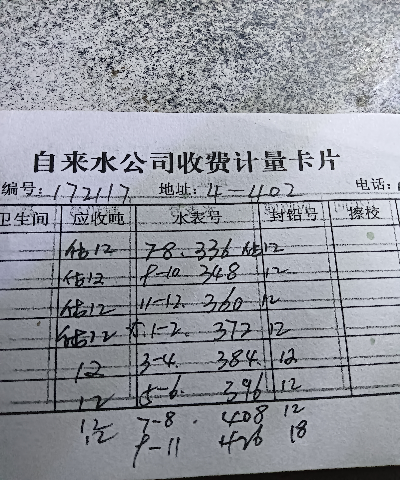 自来水公司收费计量卡片
编号: 172117 地址: 4-402 电话:
卫生间 应收吨 水表号 封铅号
估12 7-8. 336 估12
估12 9-10 348 12
估12 11-12. 360 12
估12 1-2. 372 12
12 3-4. 384. 12
12 5-6. 396 12
12 7-8. 408 12
12 9-11 426 18